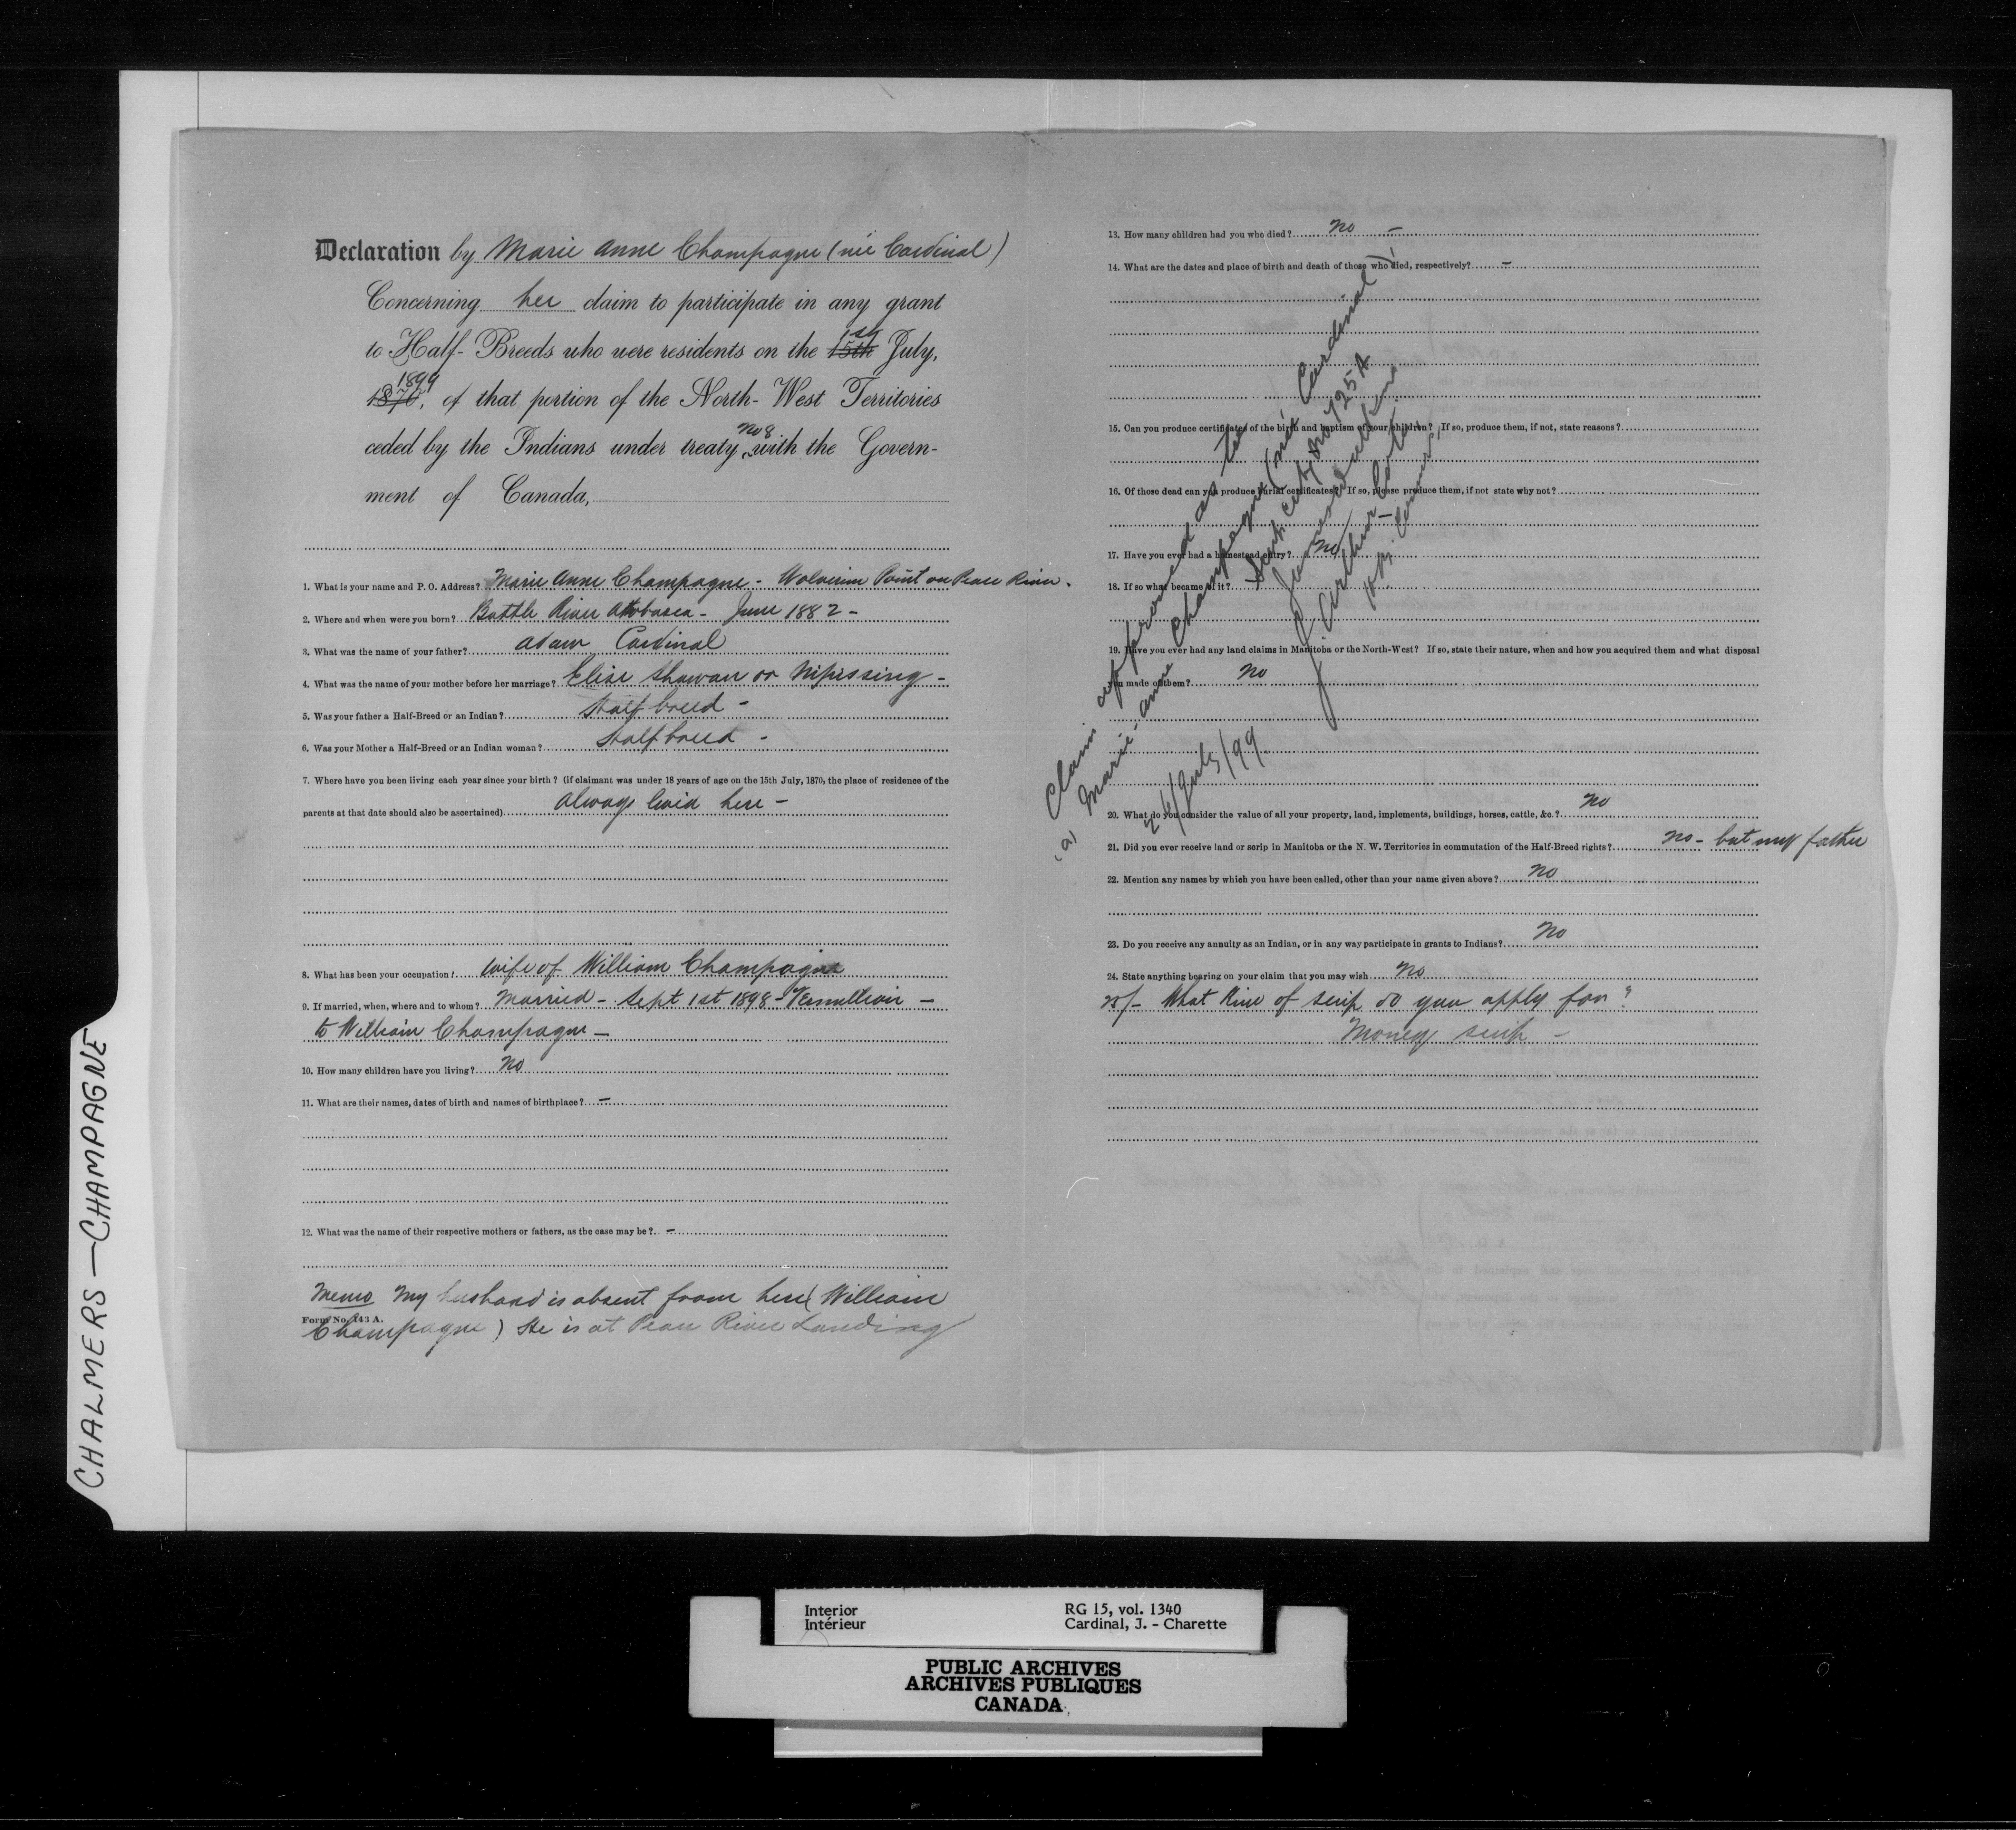 Declaration by Marie Anne Champagne (née Cardinal)
Concerning her claim to participate in any grant
to Half-Breeds who were residents on the 15th 1st July,
1870, 1899 of that portion of the North-West Territories
ceded by the Indians under treaty No 8 with the Govern-
ment of Canada,
1. What is your name and P. O. Address? Marie Anne Champagne - Wolverine Point on Peace River.
2. Where and when were you born? Battle River Athabasca - June 1882 -
3. What was the name of your father? Adam Cardinal
4. What was the name of your mother before her marriage? Elise Shawan or Nipissing -
5. Was your father a Half-Breed or an Indian? Half breed -
6. Was your Mother a Half-Breed or an Indian woman? Half breed -
7. Where have you been living each year since your birth? (if claimant was under 18 years of age on the 15th July, 1870, the place of residence of the
parents at that date should also be ascertained) Always lived here -
8. What has been your occupation? Wife of William Champagne
9. If married, when, where and to whom? Married - Sept 1st 1898 - Vermillion -
to William Champagne -
10. How many children have you living? No
11. What are their names, dates of birth and names of birthplace? -
12. What was the name of their respective mothers or fathers, as the case may be? -
Memo My husband is absent from here (William
Form No. 143 A.
Champagne) He is at Peace River Landing
13. How many children had you who died? No -
14. What are the dates and place of birth and death of those who died, respectively? -
15. Can you produce certificates of the birth and baptism of your children? If so, produce them, if not, state reasons?
16. Of those dead can you produce burial certificates? If so, please produce them, if not state why not?
-
17. Have you ever had a homestead entry? No
18. If so what became of it?
19. Have you ever had any land claims in Manitoba or the North-West? If so, state their nature, when and how you acquired them and what disposal
you made of them? No
20. What do you consider the value of all your property, land, implements, buildings, horses, cattle, &c.? No
21. Did you ever receive land or scrip in Manitoba or the N. W. Territories in commutation of the Half-Breed rights? No - but my father
22. Mention any names by which you have been called, other than your name given above? No
23. Do you receive any annuity as an Indian, or in any way participate in grants to Indians? No
24. State anything bearing on your claim that you may wish No
25/- What kind of scrip do you apply for?
Money scrip -
Claim approved as to
(a) Marie-Anne Champagne (née Cardinal)
Scrip cert No 725 A
J. Arthur Coté
H.B. Commr.
24/July/99
CHALMERS - CHAMPAGNE
Interior
Intérieur
RG 15, vol. 1340
Cardinal, J. - Charette
PUBLIC ARCHIVES
ARCHIVES PUBLIQUES
CANADA